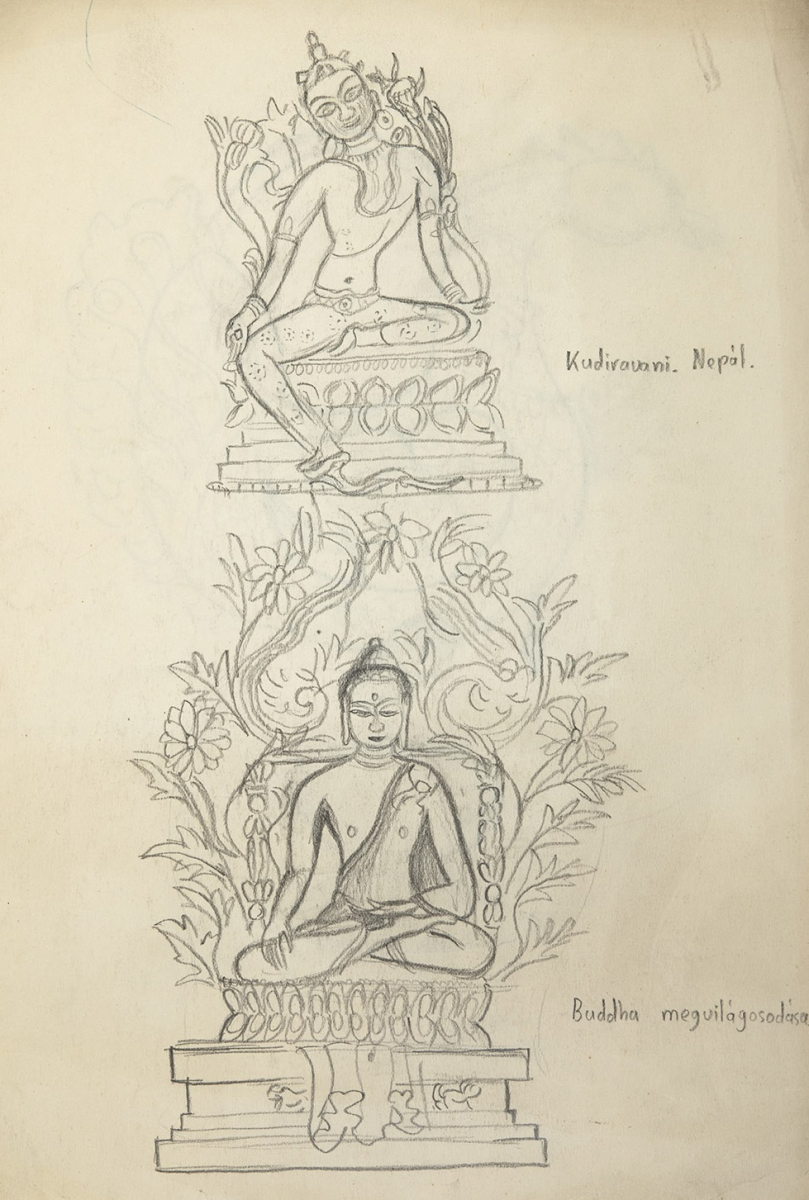 Kudiravani. Nepál.
Buddha megvilágosodása